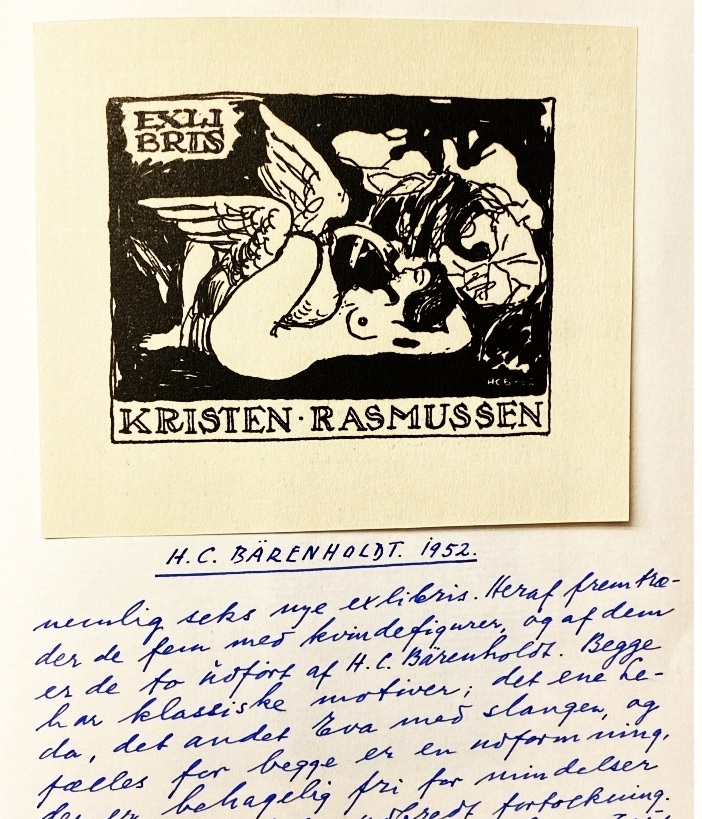 EXLI
BRIS
HCB-52
KRISTEN · RASMUSSEN
H.C. BÄRENHOLDT. 1952.
nemlig seks nye exlibris. Heraf fremtræ-
der de fem med kvindefigurer, og af dem
er de to udført af H.C. Bärenholdt. Begge
har klassiske motiver; det ene Le-
da, det andet Eva med slangen, og
fælles for begge er en udformning,
der er behagelig fri for mindelser
fortolkning.